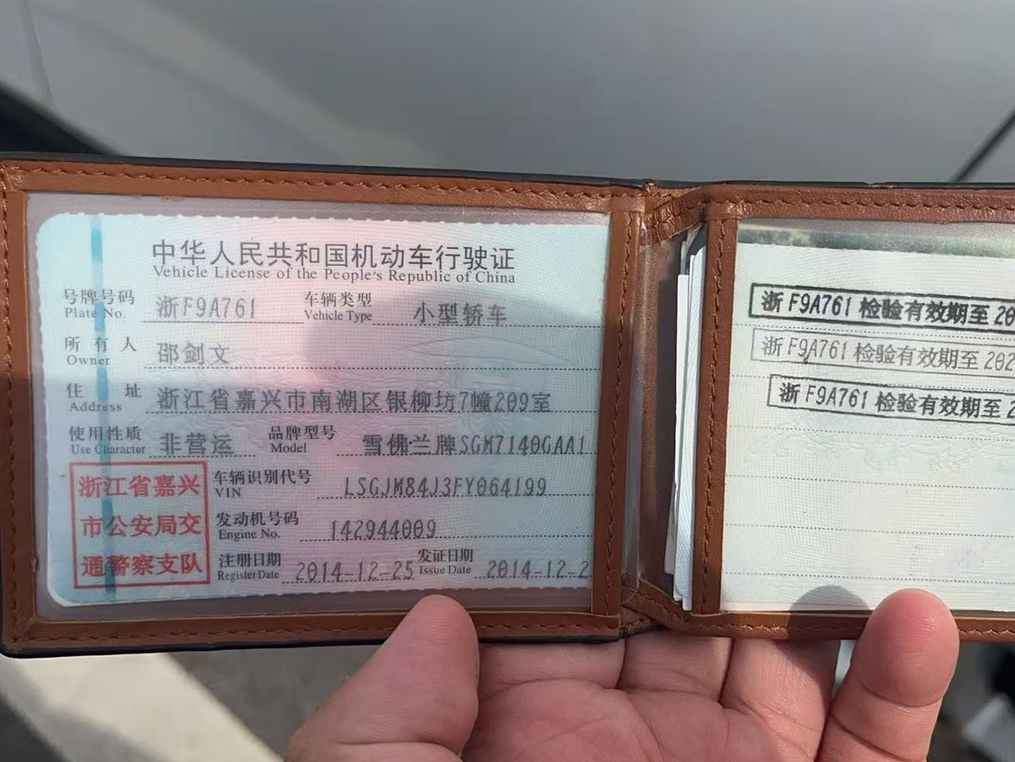 中华人民共和国机动车行驶证
Vehicle License of the People's Republic of China
号牌号码 浙F9A761 车辆类型 小型轿车
Plate No. Vehicle Type
所有人 邵剑文
Owner
住址 浙江省嘉兴市南湖区银柳坊7幢209室
Address
使用性质 非营运 品牌型号 雪佛兰牌SGM7140GAA1
Use Character Model
浙江省嘉兴
市公安局交
通警察支队
车辆识别代号 LSGJM84J3FY064199
VIN
发动机号码 142944009
Engine No.
注册日期 2014-12-25 发证日期 2014-12-2
Register Date Issue Date
浙F9A761检验有效期至20
浙F9A761检验有效期至202
浙F9A761检验有效期至2